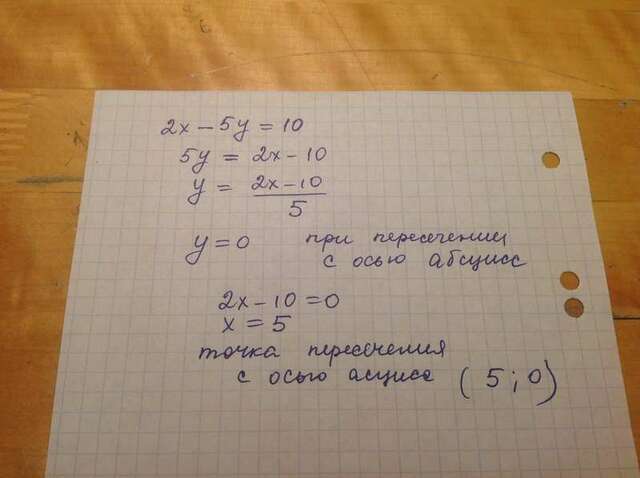 2x – 5y = 10
5y = 2x – 10
y = \frac{2x – 10}{5}
y = 0 при пересечении
с осью абсцисс
2x – 10 = 0
x = 5
точка пересечения
с осью асцисс (5; 0)